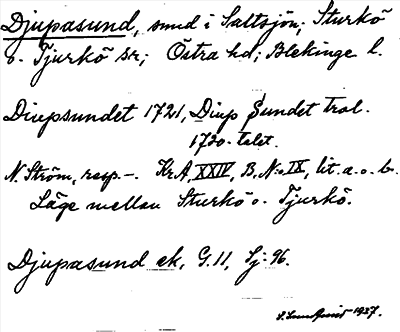 Djupasund, sund i Saltsjön; Sturkö
o. Tjurkö sr; Östra hd; Blekinge l.
Diupsundet 1721, Diup Sundet trol.
1720-talet.
N. Ström, resp. –. Kr.A. XXIV, B, N:o IX, lit. a. o. b.
Läge mellan Sturkö o. Tjurkö.
Djupasund ek, G. 11, Sj: 96.
1927.